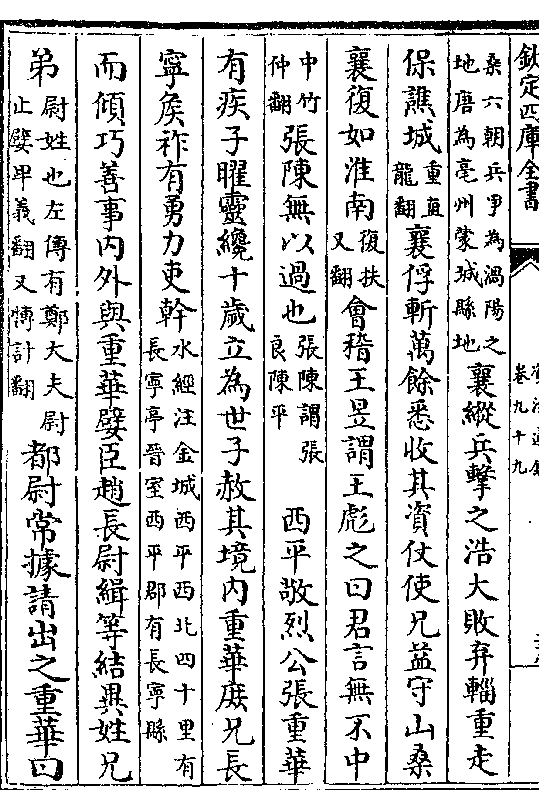 欽定四庫全書
卷九十九
桑六朝兵爭為渦陽之地唐為亳州蒙城縣地襄縱兵擊之浩大敗弃輜重走
保譙城重直龍翻襄俘斬萬餘悉收其資仗使兄益守山桑
襄復如淮南復扶又翻會稽王昱謂王彪之曰君言無不中
中竹仲翻張陳無以過也張陳謂張良陳平 西平敬烈公張重華
有疾子曜靈纔十歲立為世子赦其境内重華庶兄長
寧矦祚有勇力吏幹水經注金城西平西北四十里有長寧亭晉室西平郡有長寧縣
而傾巧善事内外與重華嬖臣趙長尉緝等結異姓兄
弟尉姓也左傳有鄭大夫尉止嬖卑義翻又愽計翻都尉常據請出之重華曰